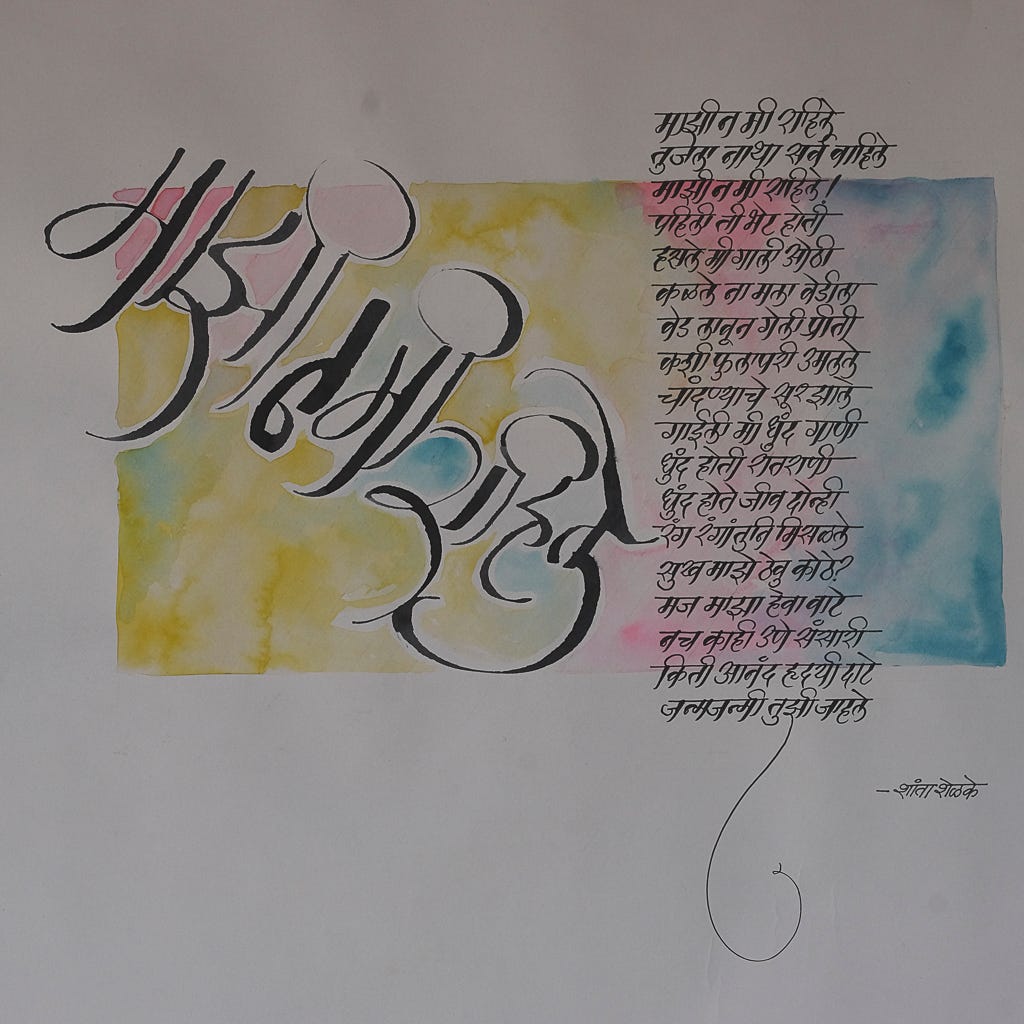 माझी न मी राहिले
माझी न मी राहिले
तुजला नाथा सर्व वाहिले
माझी न मी राहिले!
पहिली ती भेट होती
हसले मी गाली ओठी
कळले ना मला वेडीला
वेड लावून गेली प्रीती
कशी फुलापरी उमलले
चांदण्याचे सूर झाले
गाईली मी धुंद गाणी
धुंद होती रातराणी
धुंद होते जीव दोन्ही
रंग रंगांतुनि मिसळले
सुख माझे ठेवु कोठे?
मज माझा हेवा वाटे
नच काही उणे संसारी
किती आनंद हृदयी दाटे
जन्मजन्मी तुझी जाहले
– शांता शेळके